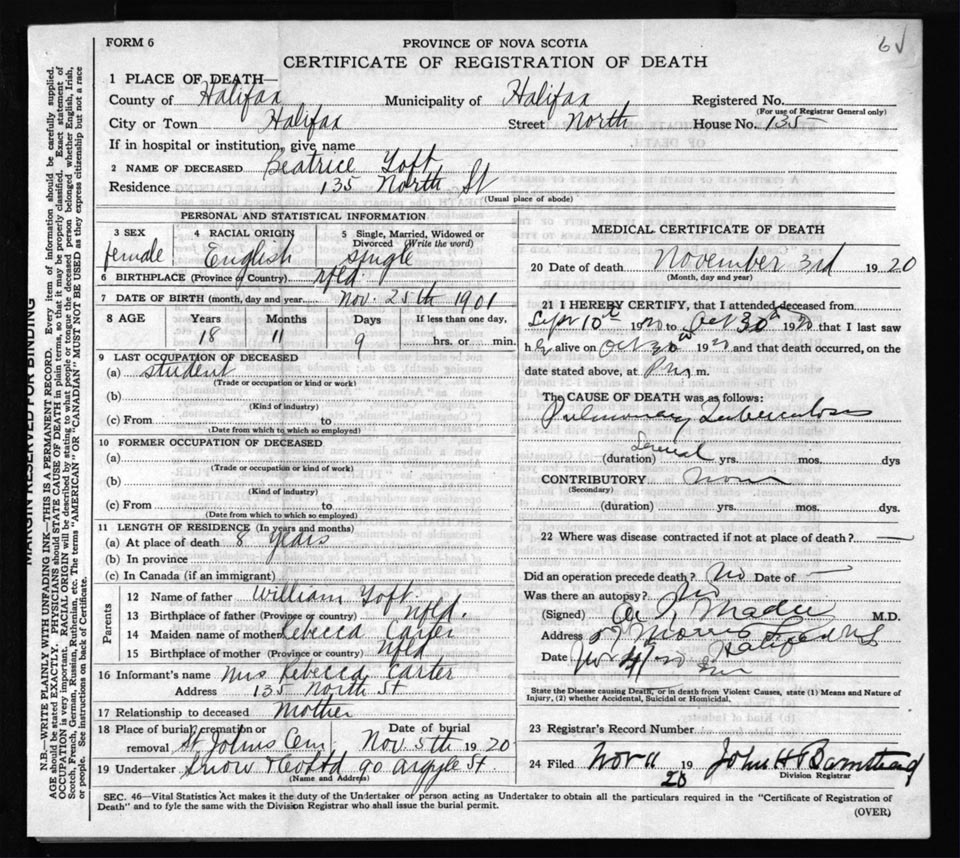 6√
FORM 6
PROVINCE OF NOVA SCOTIA
CERTIFICATE OF REGISTRATION OF DEATH
1 PLACE OF DEATH—
County of Halifax Municipality of Halifax Registered No.
(For use of Registrar General only)
City or Town Halifax Street North House No. 135
If in hospital or institution, give name
2 NAME OF DECEASED Beatrice Toft
Residence 135 North St
(Usual place of abode)
PERSONAL AND STATISTICAL INFORMATION
3 SEX female
4 RACIAL ORIGIN English
5 Single, Married, Widowed or Divorced (Write the word) single
6 BIRTHPLACE (Province of Country) Nfld.
7 DATE OF BIRTH (month, day and year) Nov. 25th 1901
8 AGE Years Months Days If less than one day,
18 11 9 hrs. or min.
9 LAST OCCUPATION OF DECEASED
(a) student
(Trade or occupation or kind or work)
(b)
(Kind of industry)
(c) From to
(Date from which to which so employed)
10 FORMER OCCUPATION OF DECEASED
(a)
(Trade or occupation or kind of work)
(b)
(Kind of industry)
(c) From to
(Date from which to which so employed)
11 LENGTH OF RESIDENCE (In years and months)
(a) At place of death 8 years
(b) In province
(c) In Canada (if an immigrant)
Parents
12 Name of father William Toft.
13 Birthplace of father (Province or country) Nfld.
14 Maiden name of mother Rebecca Carter
15 Birthplace of mother (Province or country) Nfld
16 Informant's name Mrs Rebecca Carter
Address 135 North St
17 Relationship to deceased Mother
18 Place of burial, cremation or removal St Johns Cem Date of burial Nov. 5th 1920
19 Undertaker Snow & Co Ltd 90 Argyle St.
(Name and Address)
MEDICAL CERTIFICATE OF DEATH
20 Date of death November 3rd 1920
(Month, day and year)
21 I HEREBY CERTIFY, that I attended deceased from
Sept 10th 1920 to Oct 30th 1920 that I last saw
h er alive on Oct 30th 1920 and that death occurred, on the
date stated above, at P.m. m.
The CAUSE OF DEATH was as follows:
Pulmonary Tuberculosis
(duration) Several yrs. mos. dys
CONTRIBUTORY None
(Secondary)
(duration) yrs. mos. dys.
22 Where was disease contracted if not at place of death? —
Did an operation precede death? No Date of —
Was there an autopsy? No
(Signed) M.D.
Address Morris Halifax
Date Nov 4/20
State the Disease causing Death, or in death from Violent Causes, state (1) Means and Nature of
Injury, (2) whether Accidental, Suicidal or Homicidal,
23 Registrar's Record Number
24 Filed Nov 11 1920 John H Barnstead
Division Registrar
SEC. 46—Vital Statistics Act makes it the duty of the Undertaker or person acting as Undertaker to obtain all the particulars required in the "Certificate of Registration of
Death" and to fyle the same with the Division Registrar who shall issue the burial permit.
(OVER)
MARGIN RESERVED FOR BINDING
N.B.—WRITE PLAINLY WITH UNFADING INK—THIS IS A PERMANENT RECORD. Every item of information should be carefully supplied.
AGE should be stated EXACTLY. PHYSICIANS should STATE CAUSE OF DEATH in plain terms, so that it may be properly classified. Exact statement of
OCCUPATION is very important. RACIAL ORIGIN will be described by stating to what people or tongue the deceased person belonged whether English, Irish,
Scotch, French, German, Russian, Ruthenian, etc. The terms "AMERICAN" OR "CANADIAN" MUST NOT BE USED as they express citizenship but not a race
or people. See instructions on back of Certificate.